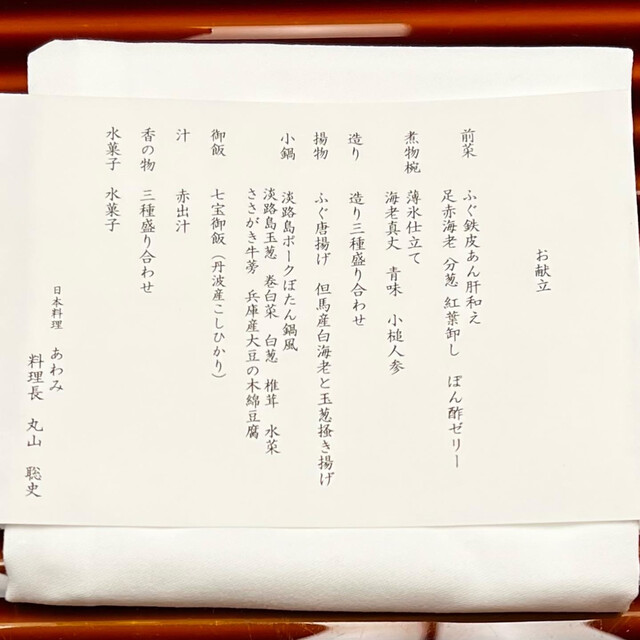 お献立
前菜　ふぐ鉄皮あん肝和え
足赤海老　分葱　紅葉卸し　ぽん酢ゼリー
煮物椀　薄氷仕立て
海老真丈　青味　小槌人参
造り　造り三種盛り合わせ
揚物　ふぐ唐揚げ　但馬産白海老と玉葱掻き揚げ
小鍋　淡路島ポークぼたん鍋風
淡路島玉葱　巻白菜　白葱　椎茸　水菜
ささがき牛蒡　兵庫産大豆の木綿豆腐
御飯　七宝御飯（丹波産こしひかり）
汁　赤出汁
香の物　三種盛り合わせ
水菓子　水菓子
日本料理　あわみ
料理長　丸山　聡史